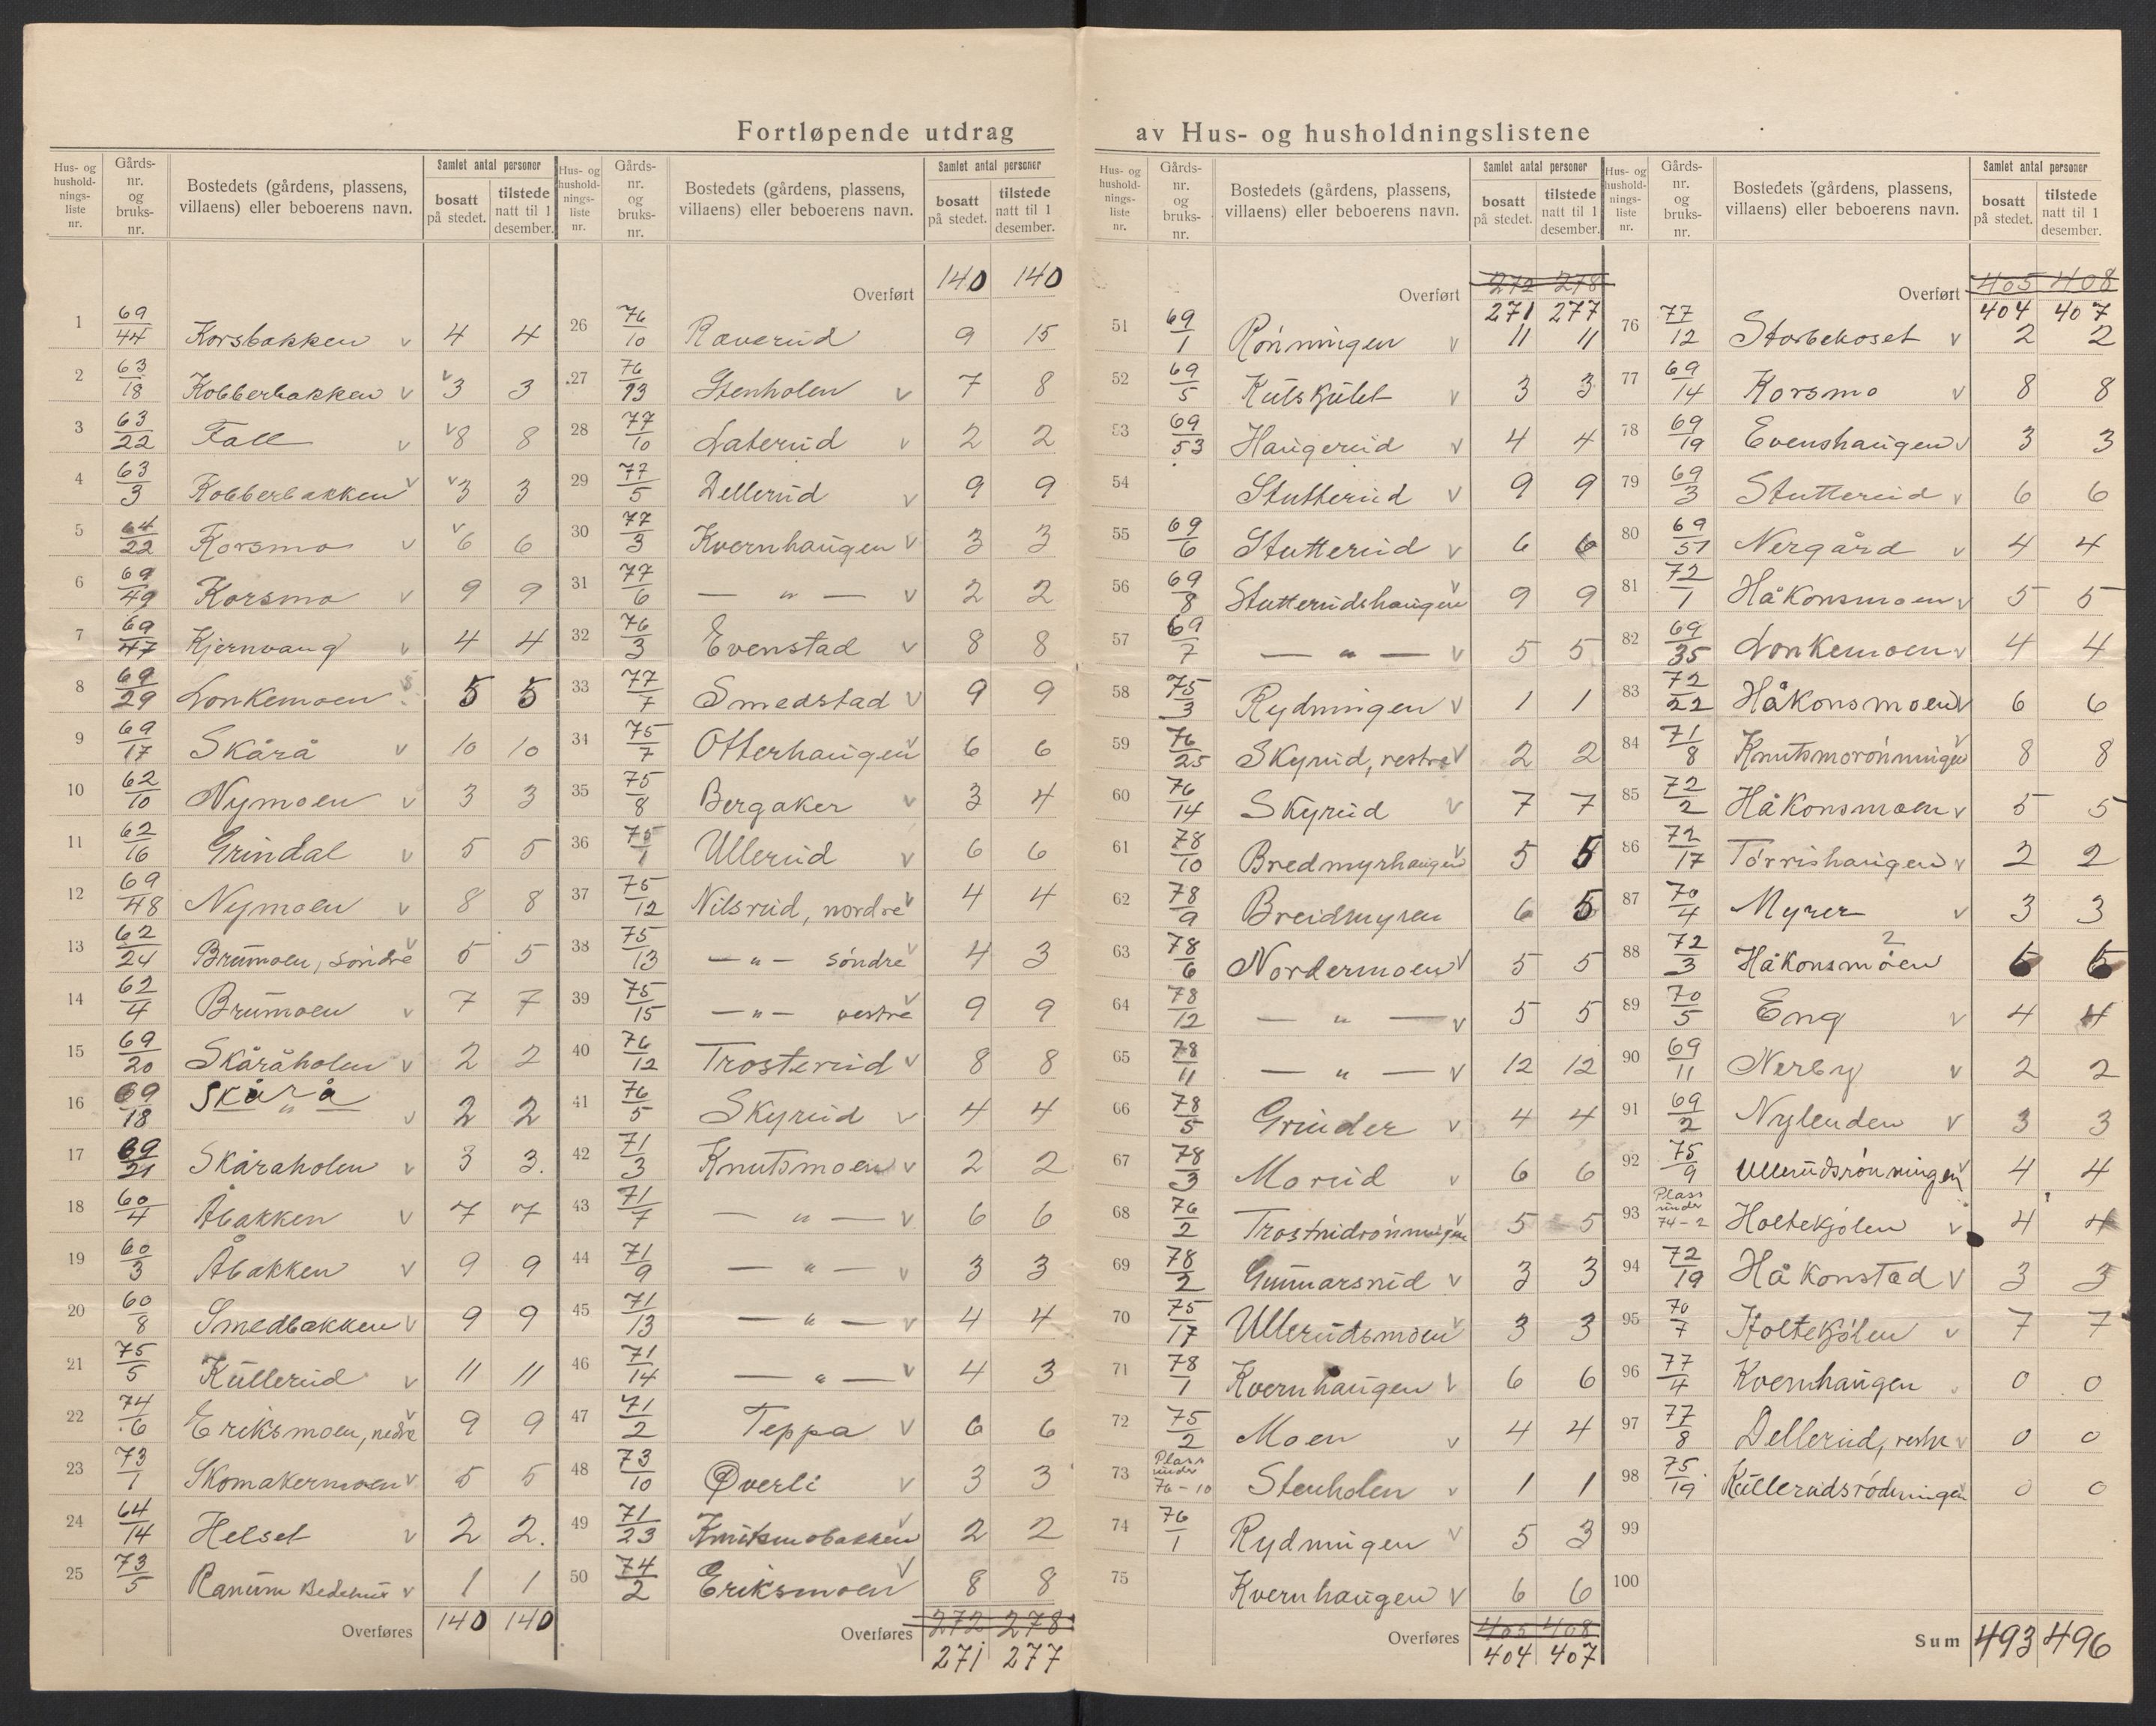 Fortløpende utdrag av Hus- og husholdningslistene
Hus- og hushold- nings- liste nr. | Gårds- nr. og bruks- nr. | Bostedets (gårdens, plassens, villaens) eller beboerens navn. | Samlet antal personer | bosatt på stedet. | tilstede natt til 1 desember.
1 69/44 Korsbakken v 4 4
2 63/18 Kobberbakken v v3 3
3 63/22 Fall v v8 8
4 63/3 Kobberbakken v v3 3
5 64/22 Korsmo v v6 6
6 69/49 Korsmo v 9 9
7 69/47 Kjernvang v 4 4
8 69/29 Lonkemoen 5 5
9 69/17 Skårå v 10 10
10 62/10 Nymoen v 3 3
11 62/16 Grindal v 5 5
12 69/48 Nymoen v 8 8
13 62/24 Brumoen, søndre v 5 5
14 62/4 Brumoen v 7 7
15 69/20 Skåråholen v 2 2
16 69/18 Skårå v 2 2
17 69/21 Skåraholen v 3 3.
18 60/4 Åbakken v 7 7
19 60/3 Åbakken v 9 9
20 60/8 Smedbakken v 9 9
21 75/5 Kullerud v 11 11
22 74/6 Eriksmoen, nedre v 9 9
23 73/1 Skomakermoen v 5 5
24 64/14 Helset v 2 2.
25 73/5 Ranum Bedehus v 1 1
Overføres 140 140
Hus- og hushold- nings- liste nr. | Gårds- nr. og bruks- nr. | Bostedets (gårdens, plassens, villaens) eller beboerens navn. | Samlet antal personer | bosatt på stedet. | tilstede natt til 1 desember.
Overført 140 140
26 76/10 Raverud 9 15
27 76/13 Stenholen v 7 8
28 77/10 Laterud v 2 2
29 77/5 Dellerud v 9 9
30 77/3 Kvernhaugen v 3 3
31 77/6 — " — v 2 2
32 76/3 Evenstad v 8 8
33 77/7 Smedstad v 9 9
34 75/7 Otterhaugen v 6 6
35 75/8 Bergaker v 3 4
36 75/1 Ullerud v 6 6
37 75/12 Nilsrud, nordre v 4 4
38 75/13 — " — søndre v 4 3
39 75/15 — " — vestre v 9 9
40 76/12 Trosterud v 8 8
41 76/5 Skyrud v 4 4
42 71/3 Knutsmoen v 2 2
43 71/7 — " — v 6 6
44 71/9 — " — v 3 3
45 71/13 — " — v 4 4
46 71/14 — " — v 4 3
47 71/2 Teppa v 6 6
48 73/10 Øverli v 3 3
49 71/23 Knutsmobakken v 2 2
50 74/2 Eriksmoen v 8 8
Overføres 272 278
271 277
Hus- og hushold- nings- liste nr. | Gårds- nr. og bruks- nr. | Bostedets (gårdens, plassens, villaens) eller beboerens navn. | Samlet antal personer | bosatt på stedet. | tilstede natt til 1 desember.
Overført 272 278
271 277
51 69/1 Rønningen v 11 11
52 69/5 Kulskjulet v 3 3
53 69/53 Haugerud v 4 4
54 Stutterud v 9 9
55 69/6 Stutterud v 6 6
56 69/8 Stutterudshaugen v 9 9
57 69/7 — " — v 5 5
58 75/3 Rydningen v 1 1
59 76/25 Skyrud, vestre v 2 2
60 76/14 Skyrud v 7 7
61 78/10 Bredmyrhaugen v 5 5
62 78/9 Breidmyren 6 5
63 78/6 Nordermoen v 5 5
64 78/12 — " — v 5 5
65 78/11 — " — v 12 12
66 78/5 Grinder v 4 4
67 78/3 Morud v 6 6
68 76/2 Trostrudrønningen v 5 5
69 78/2 Gunnarsrud v 3 3
70 75/17 Ullerudsmoen v 3 3
71 78/1 Kvernhaugen v 6 6
72 75/2 Moen v 4 4
73 Plass under 76-10 Stenholen v 1 1
74 76/1 Rydningen v 5 3
75 Kvernhaugen v 6 6
Overføres 405 408
404 407
Hus- og hushold- nings- liste nr. | Gårds- nr. og bruks- nr. | Bostedets (gårdens, plassens, villaens) eller beboerens navn. | Samlet antal personer | bosatt på stedet. | tilstede natt til 1 desember.
Overført 405 408
404 407
76 77/12 Storbekoset v 2 2
77 69/14 Korsmo v 8 8
78 69/19 Evenshaugen v 3 3
79 69/3 Stutterud v 6 6
80 69/51 Nergård v 4 4
81 72/1 Håkonsmoen v 5 5
82 69/35 Lonkemoen v 4 4
83 72/22 Håkonsmoen v 6 6
84 71/8 Knutsmorønningen v 8 8
85 72/2 Håkonsmoen v 5 5
86 72/17 Tørrishaugen v 2 2
87 70/4 Myrer v 3 3
88 72/3 Håkonsmoen 2 6 6
89 70/5 Eng v 4 4
90 69/11 Nerby v 2 2
91 69/2 Nylenden v 3 3
92 75/9 Ullerudsrønningen v 4 4
93 Plass under 74-2 Holtekjølen v 4 4
94 72/19 Håkonstad v 3 3
95 70/7 Holtekjølen v 7 7
96 77/4 Kvernhaugen 0 0
97 77/8 Dellerud, vestre v 0 0
98 75/19 Kullerudsrødningen 0 0
99
100
Sum 493 496